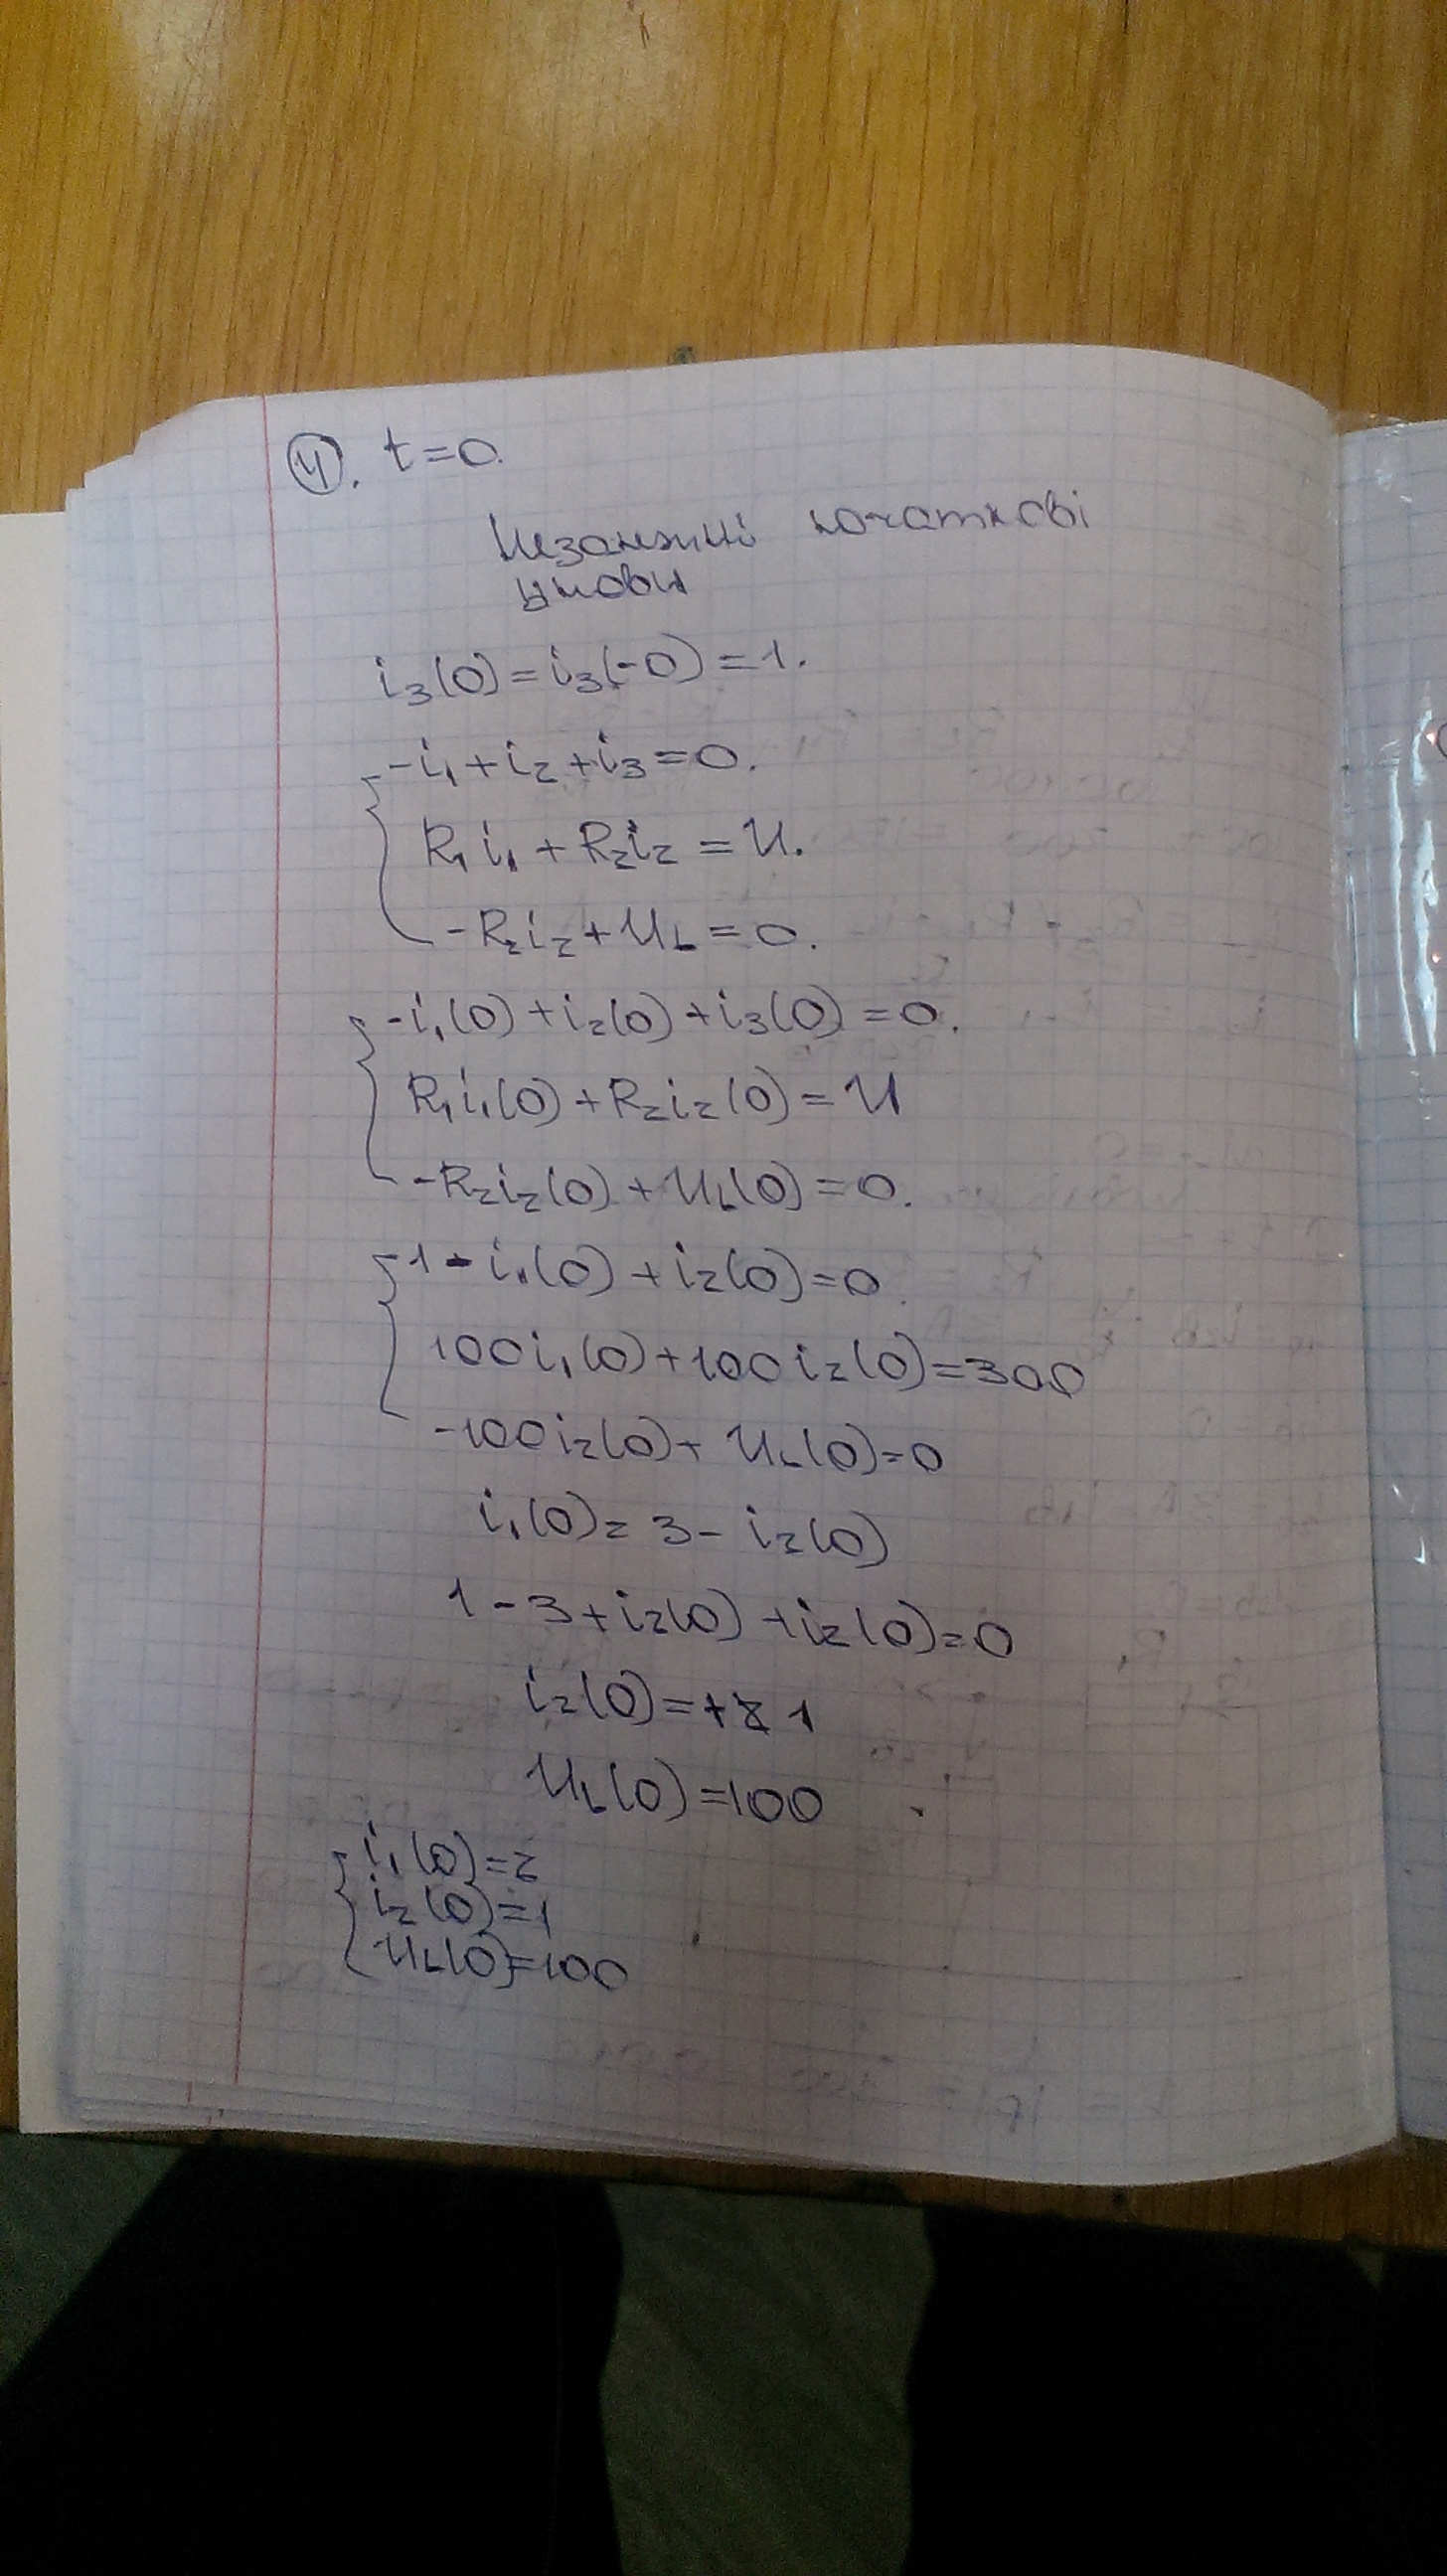 4. t=0.
Незалежні початкові
умови
i₃(0)=i₃(-0)=1.
-i₁+i₂+i₃=0.
R₁i₁+R₂i₂=U.
-R₂i₂+U_L=0.
-i₁(0)+i₂(0)+i₃(0)=0.
R₁i₁(0)+R₂i₂(0)=U
-R₂i₂(0)+U_L(0)=0.
1-i₁(0)+i₂(0)=0.
100i₁(0)+100i₂(0)=300
-100i₂(0)+U_L(0)=0
i₁(0)=3-i₂(0)
1-3+i₂(0)+i₂(0)=0
i₂(0)=+1
U_L(0)=100
i₁(0)=2
i₂(0)=1
U_L(0)=100